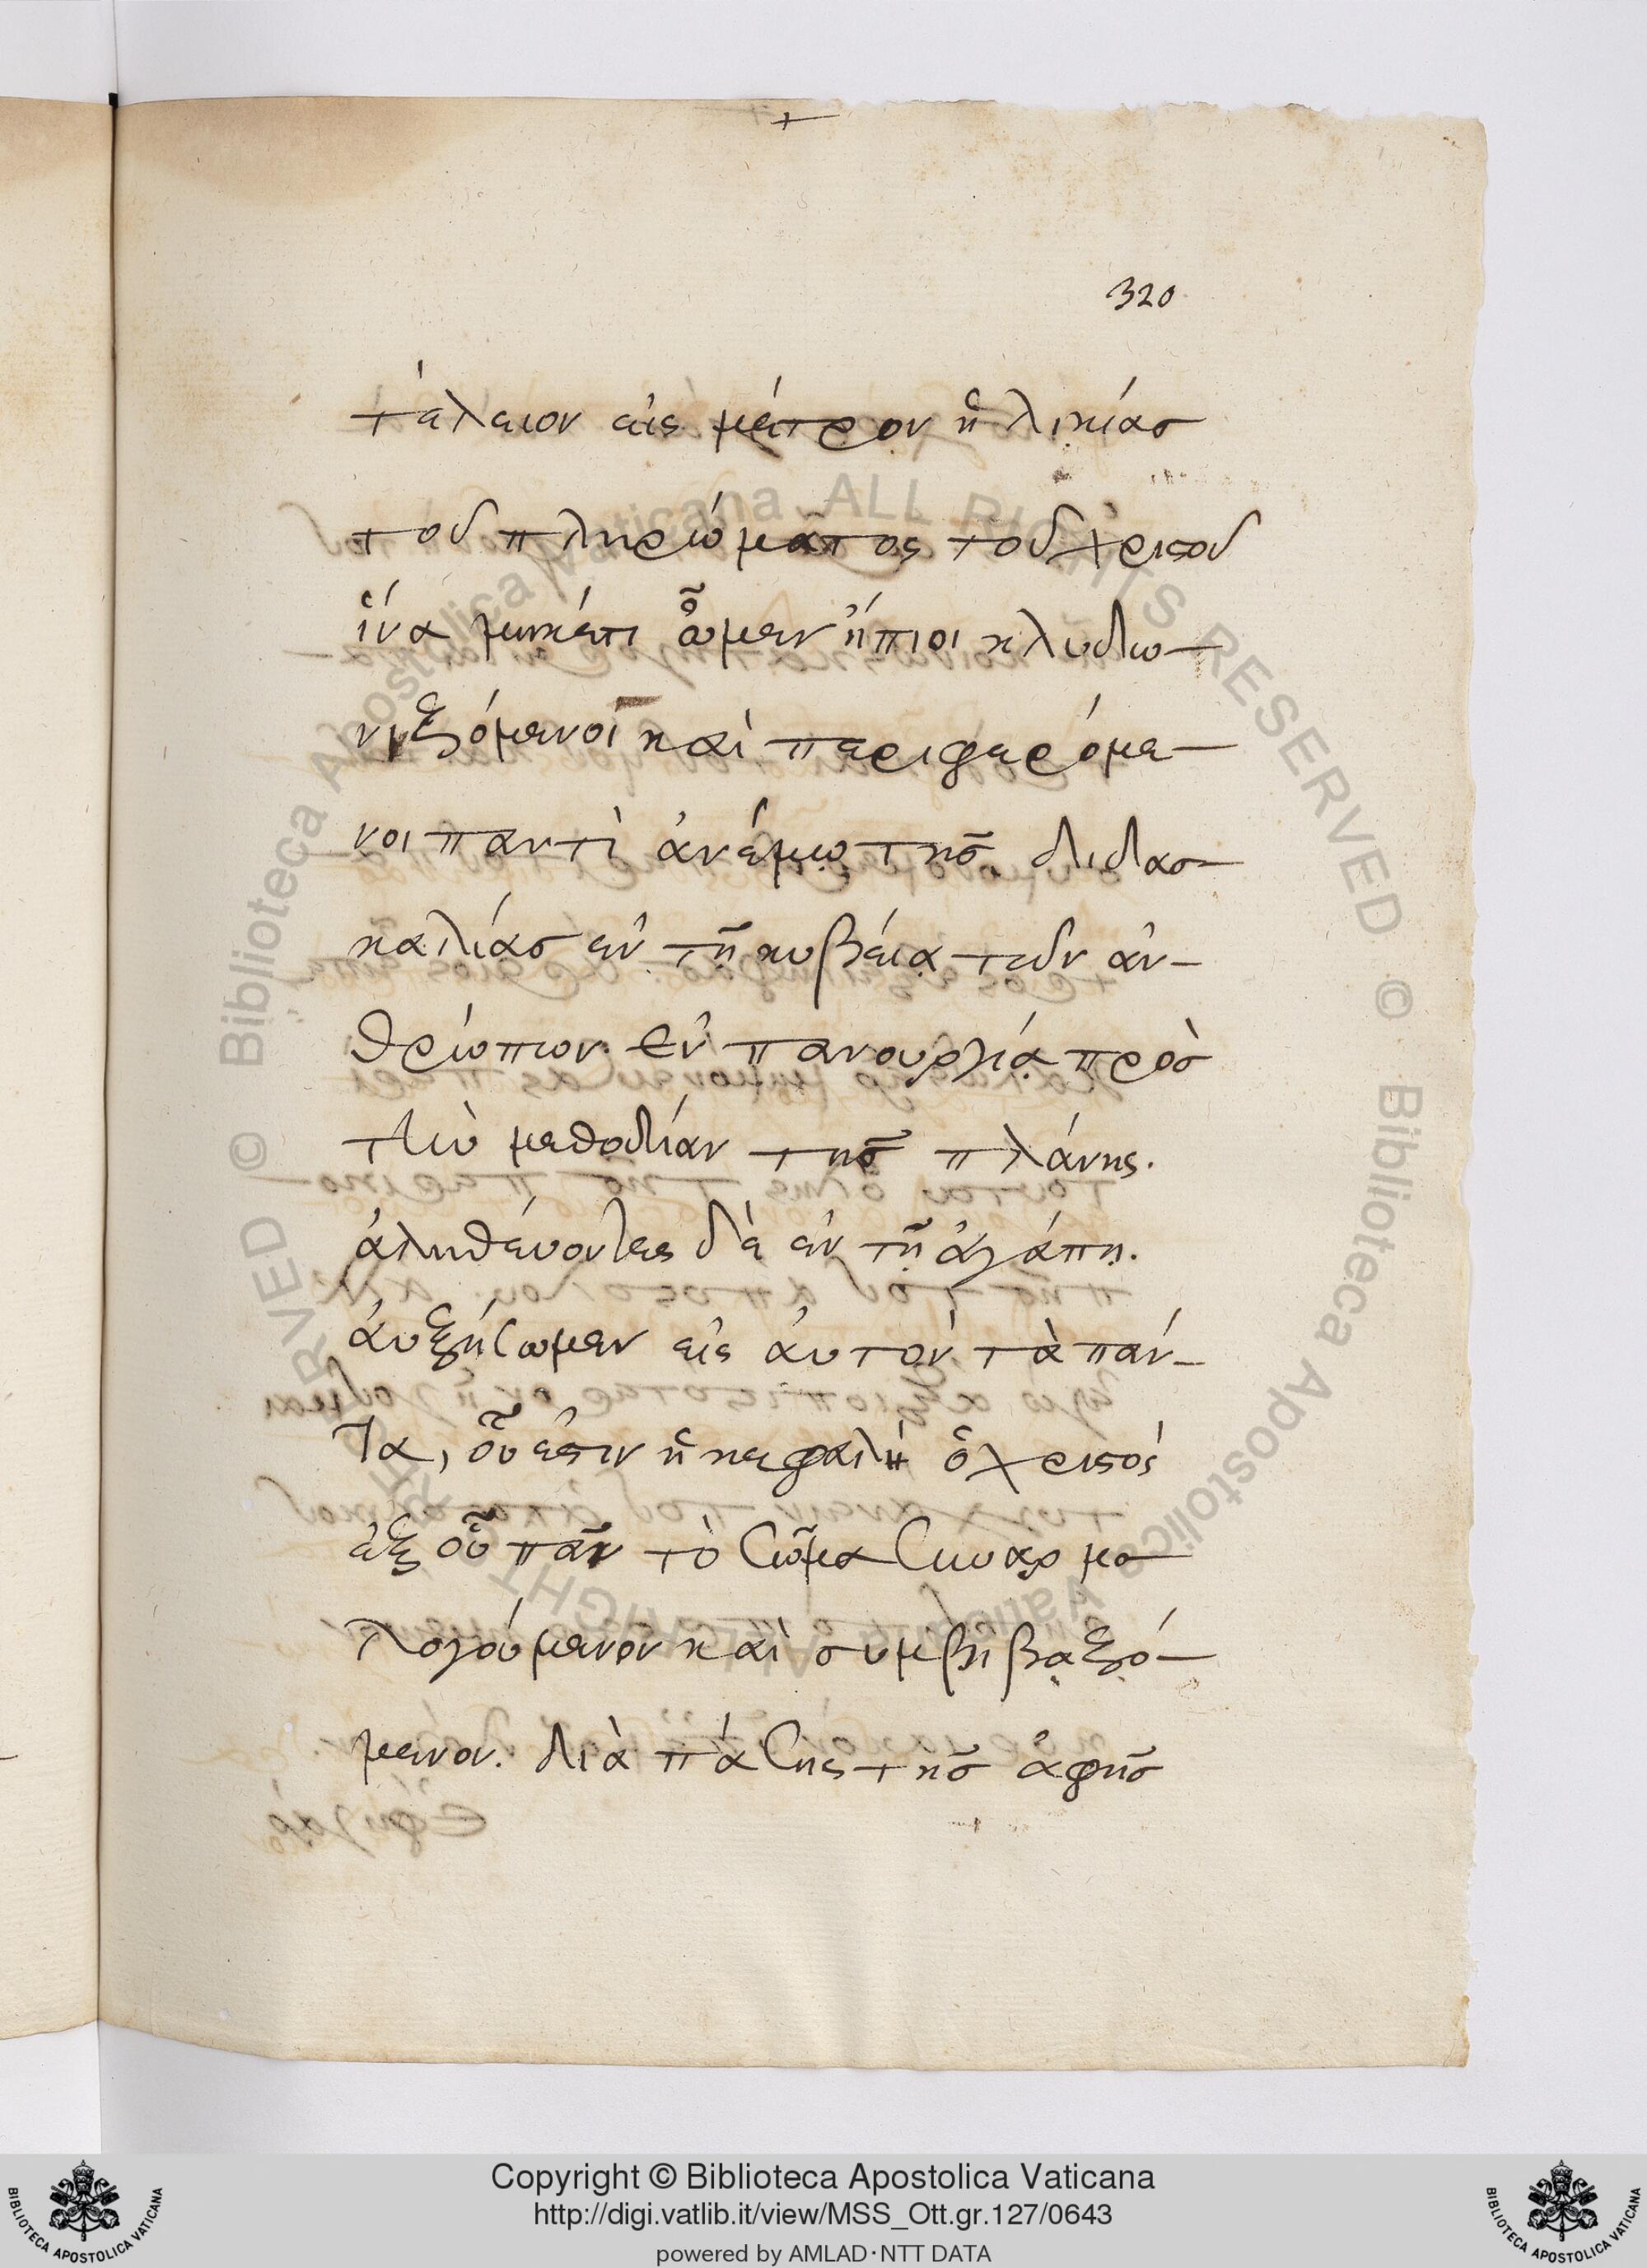 +
320
τέλειον εἰς μέτρον ἡλικίας
τοῦ πληρώματος τοῦ Χριστοῦ
ἵνα μηκέτι ὦμεν νήπιοι κλυδω–
νιξόμενοι καὶ περιφερόμε–
νοι παντὶ ἀνέμῳ τῆς διδασ–
καλίας ἐν τῇ κυβείᾳ τῶν ἀν–
θρώπων ἐν πανουργίᾳ πρὸς
τὴν μεθοδίαν τῆς πλάνης.
ἀληθέυοντες δὲ ἐν τῇ ἀγάπῃ.
ἀυξήσωμεν εἰς ἀυτὸν τὰ πάν–
τα, οὗ ἐστιν ἡ κεφαλὴ ὁ χριστὸς
ἐξ οὗ πᾶν τὸ σῶμα συναρμο–
λογούμενον καὶ συμβιβαξό–
μενον. διὰ πάσης τῆς ἁφῆς
© Biblioteca Apostolica Vaticana ALL RIGHTS RESERVED © Biblioteca Apostolica Vaticana ALL RIGHTS RESERVED
Copyright © Biblioteca Apostolica Vaticana
http://digi.vatlib.it/view/MSS_Ott.gr.127/0643
powered by AMLAD·NTT DATA
BIBLIOTECA APOSTOLICA VATICANA
BIBLIOTECA APOSTOLICA VATICANA